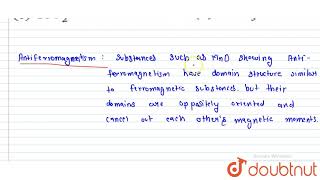 Antiferromagnetism : Substances such as MnO showing Anti-
ferromagnetism have domain structure similar
to ferromagnetic substances. but their
domains are oppositely oriented and
cancel out each other's magnetic moments.
doubtnut